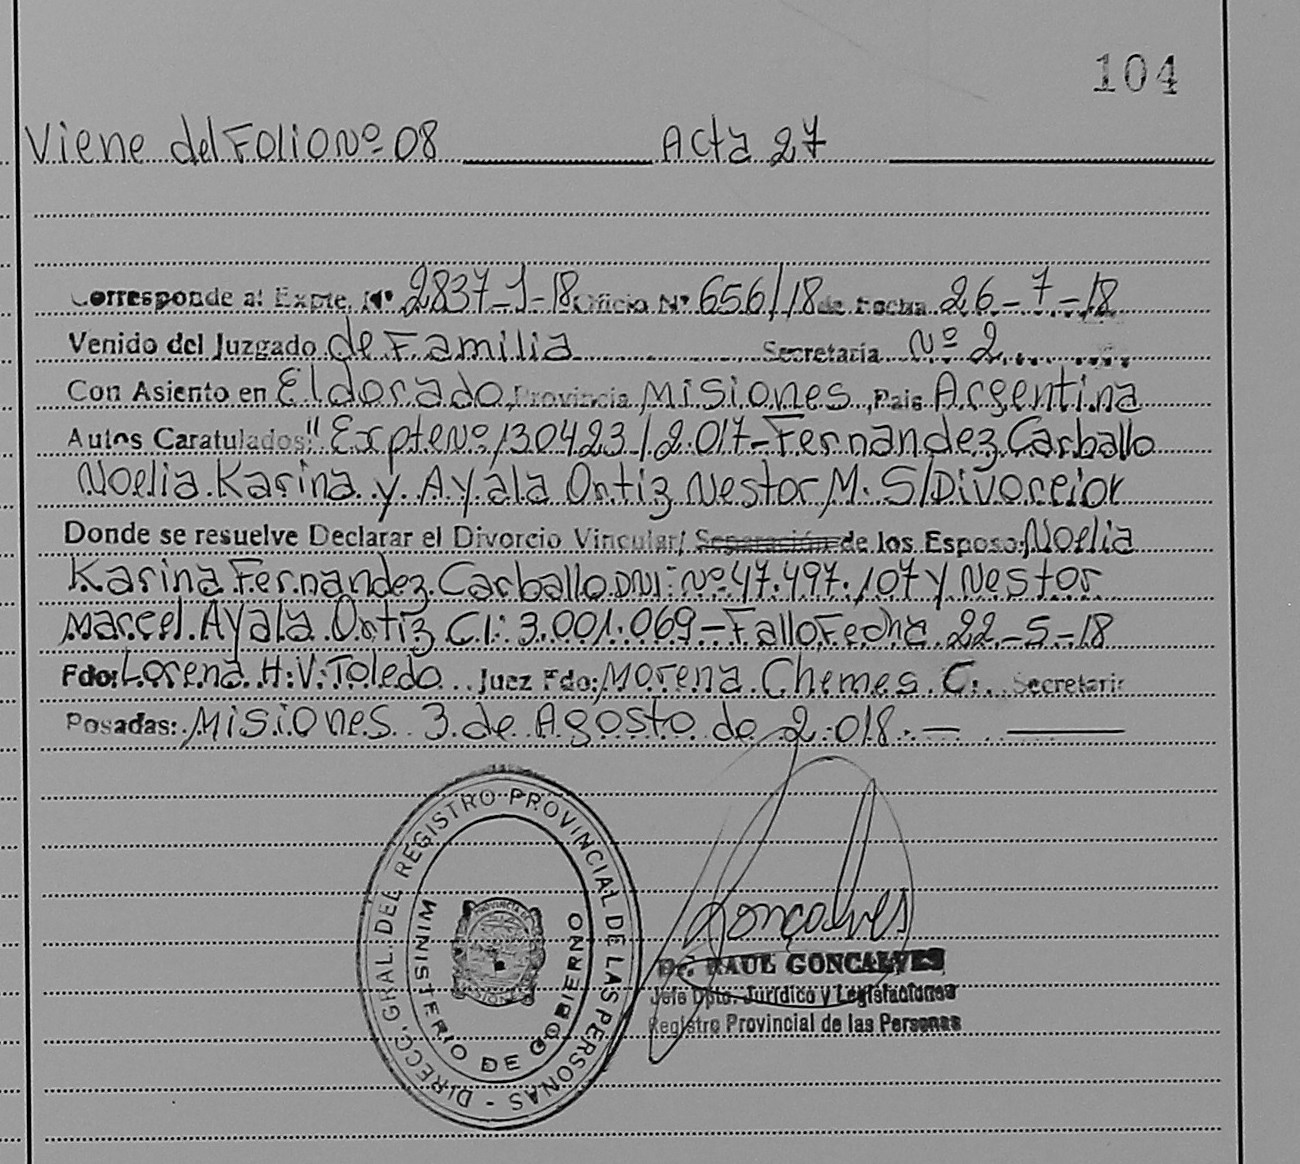 104
Viene del Folio Nº 08 Acta 27
Corresponde al Expte. Nº 2837-J-18 Oficio Nº 656/18 de Fecha 26-7-18
Venido del Juzgado de Familia Secretaría Nº 2
Con Asiento en Eldorado, Provincia Misiones, Pais Argentina
Autos Caratulados: "Expte Nº 130423/2.017-Fernandez Carballo
Noelia Karina y Ayala Ortiz Nestor M. S/Divorcio"
Donde se resuelve Declarar el Divorcio Vincular/ Separación de los Esposo: Noelia
Karina Fernandez Carballo DNI: Nº 47.497.107 y Nestor
Marcel Ayala Ortiz CI: 3.001.069-Fallo Fecha 22-5-18
Fdo: Lorena H. V. Toledo Juez Fdo: Morena Chemes C. Secretari
Posadas: Misiones 3 de Agosto de 2.018.-
DIRECC. GRAL. DEL REGISTRO PROVINCIAL DE LAS PERSONAS -
MINISTERIO DE GOBIERNO
PROVINCIA DE
MISIONES
Gonçalves
Dr. RAUL GONCALVES
Jefe Dpto. Jurídico y Legislaciones
Registro Provincial de las Personas